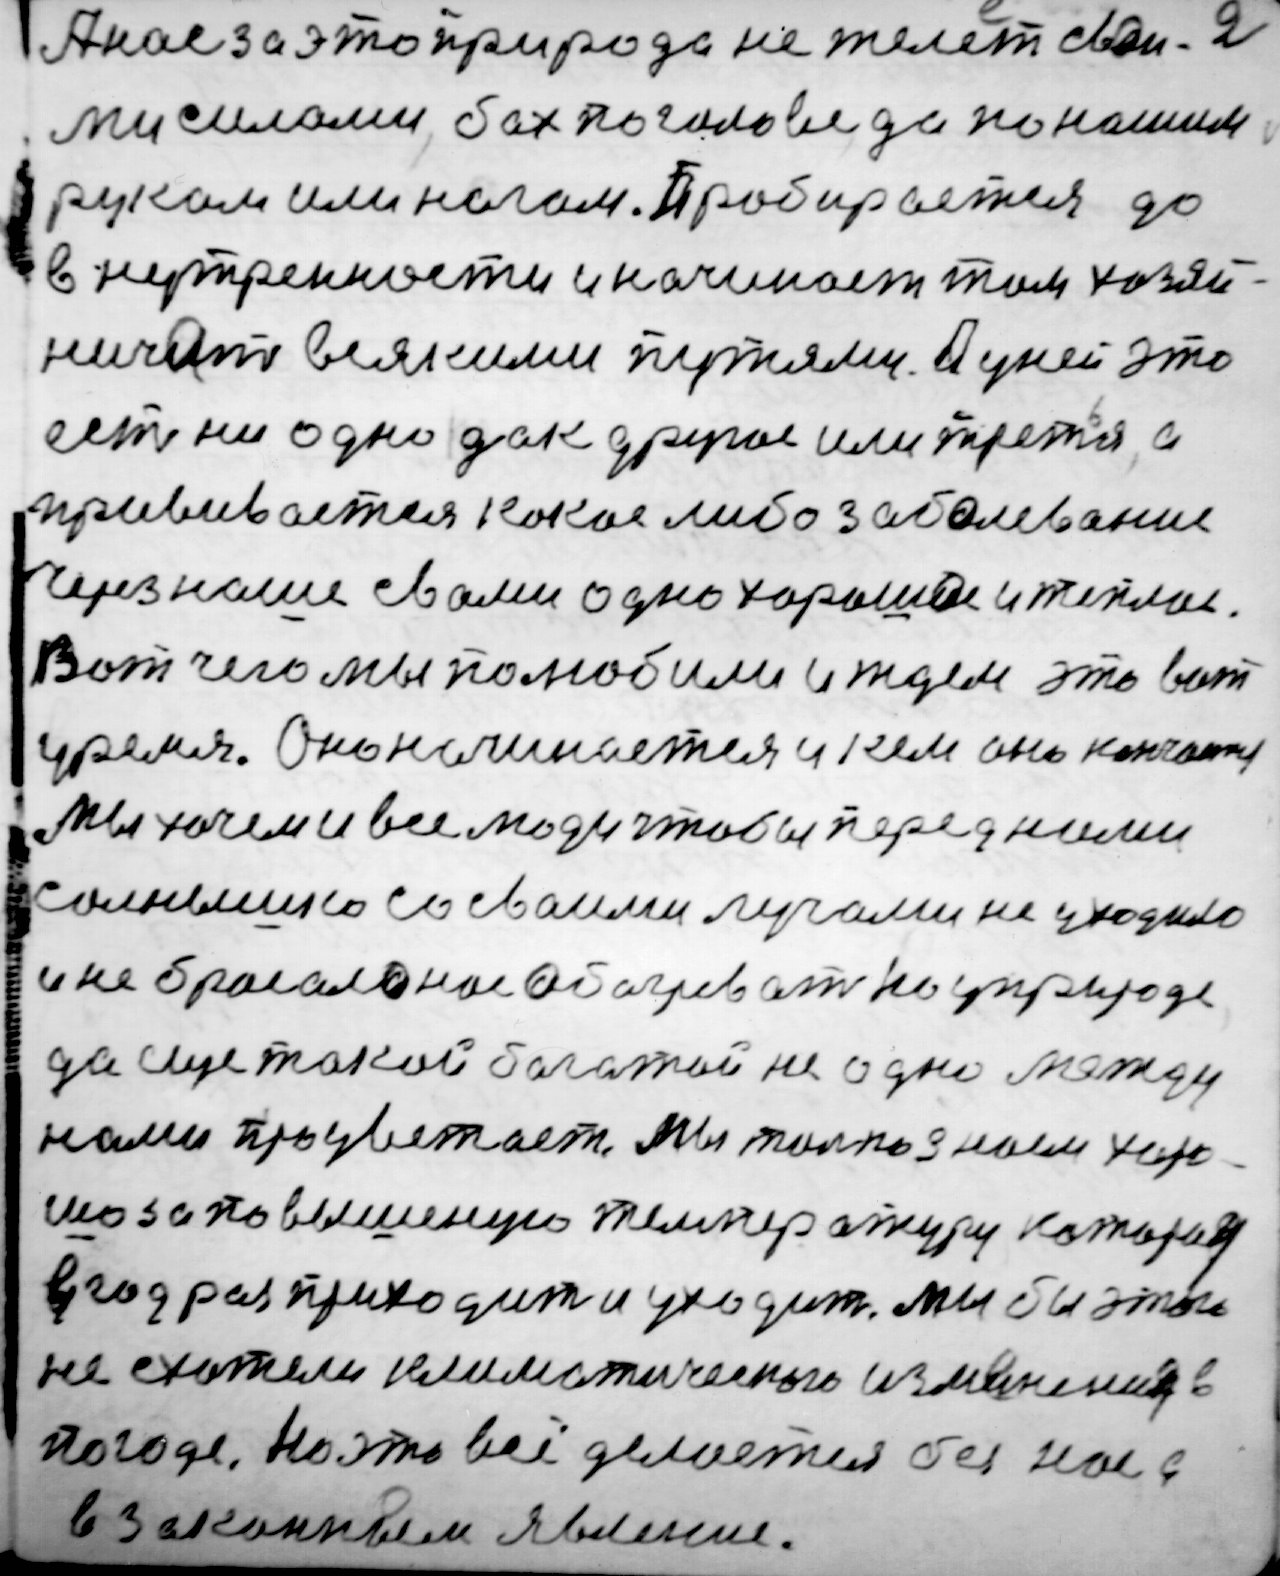 А нас за это природа не желеет свои- 2
ми силами, бах по голове да по нашим
рукам или ногам. Пробирается до
внутренности и начинает там хозяй-
ничать всякими путями. А у ней это
есть ни одно дак другое или третья, а
прививается какое либо заболевание
через наше с вами одно хорошое и теплое.
Вот чего мы полюбили и ждем это вот
время. Оно начинается и кем оно кончается
Мы хочем и все люди чтобы перед нами
солнышко со своими лучами не уходило
и не бросало нас обогревать Но у природе
да еще такой богатой не одно между
нами процветает. Мы только знаем хоро-
шо за повышеную температуру которая
в год раз приходит и уходит. Мы бы этого
не схотели климатического изменения в
погоде. Но это всё делается без нас а
в законным явление.